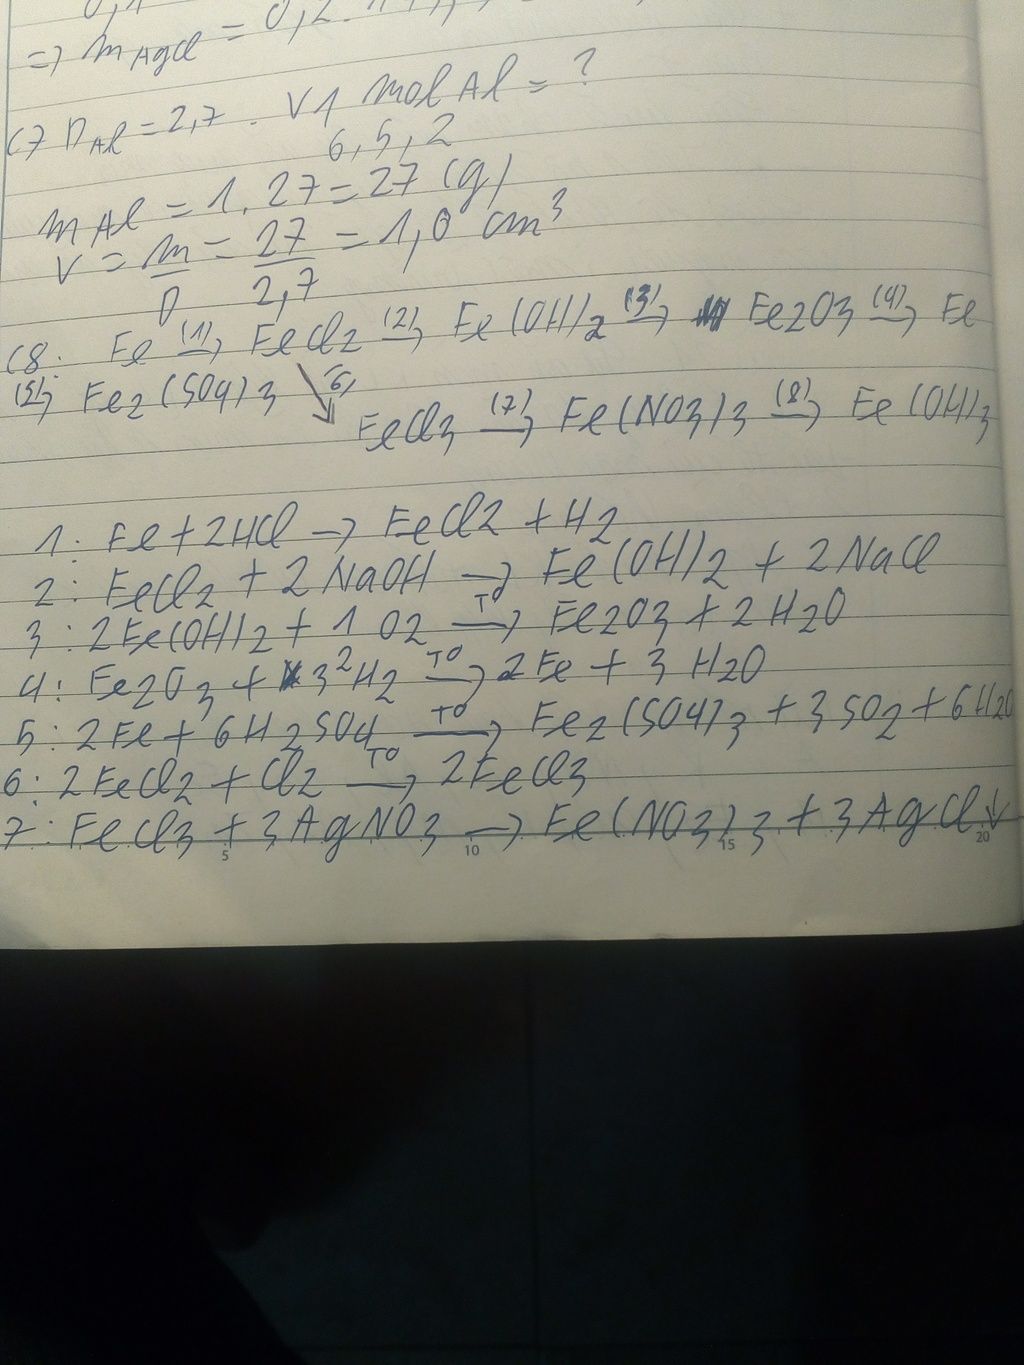 => mAgCl = 0,2.
C7 DAl = 2,7 . V1 mol Al = ?
6,5,2
mAl = 1.27 = 27 (g)
V = m/D = 27/2,7 = 1,0 cm3
C8: Fe (1)→ FeCl2 (2)→ Fe(OH)2 (3)→ Fe2O3 (4)→ Fe
(5)→ Fe2(SO4)3 (6)
FeCl3 (7)→ Fe(NO3)3 (8)→ Fe(OH)3
1: Fe + 2HCl → FeCl2 + H2
2: FeCl2 + 2NaOH → Fe(OH)2 + 2NaCl
3: 2Fe(OH)2 + 1 O2 TO→ Fe2O3 + 2H2O
4: Fe2O3 + 3 2H2 TO→ 2Fe + 3 H2O
5: 2Fe + 6H2SO4 TO→ Fe2(SO4)3 + 3SO2 + 6H2O
6: 2FeCl2 + Cl2 TO→ 2FeCl3
7: FeCl3 + 3AgNO3 → Fe(NO3)3 + 3AgCl↓
5 10 15 20